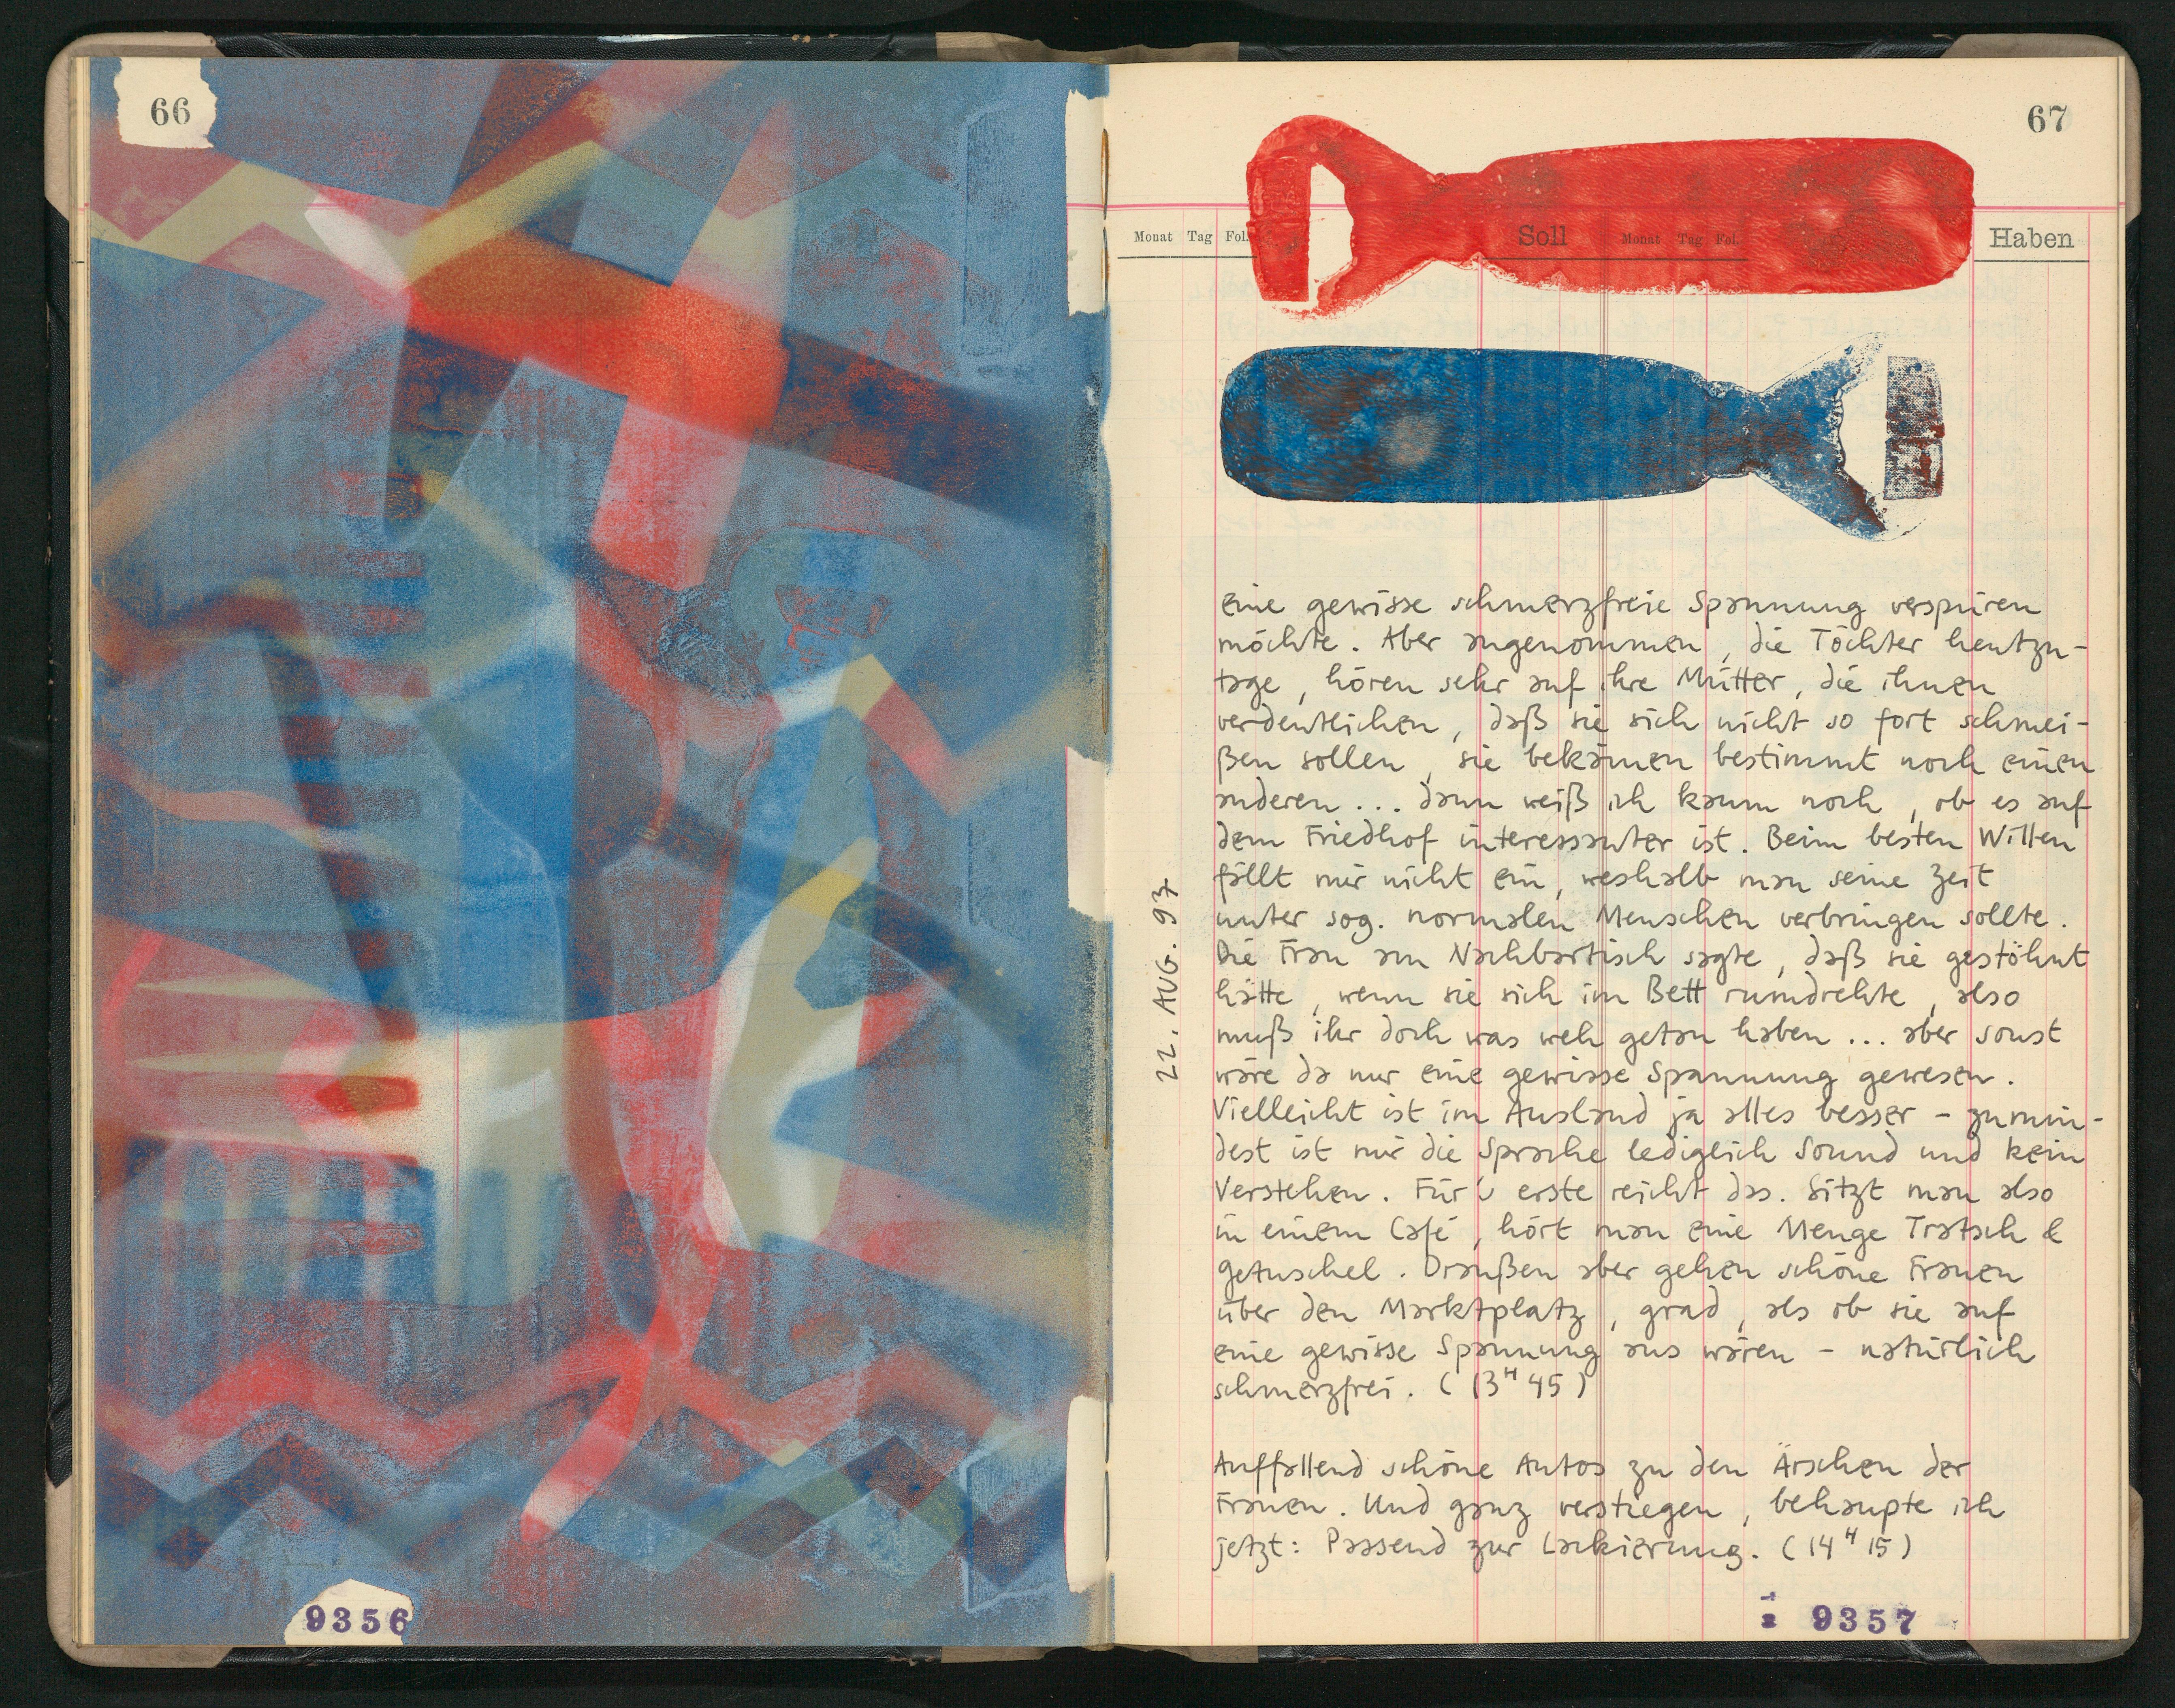 66
9356
67
Monat Tag Fol.
Soll
Monat Tag Fol.
Haben
22. AUG. 97
eine gewisse schmerzfreie Spannung verspüren
möchte. Aber angenommen, die Töchter heutzu-
tage, hören sehr auf ihre Mütter, die ihnen
verdeutlichen, daß sie sich nicht so fort schmei-
ßen sollen, sie bekämen bestimmt noch einen
anderen... dann weiß ich kaum noch, ob es auf
dem Friedhof interessanter ist. Beim besten Willen
fällt mir nicht ein, weshalb man seine Zeit
unter sog. normalen Menschen verbringen sollte.
Die Frau am Nachbartisch sagte, daß sie gestöhnt
hätte, wenn sie sich im Bett rumdrehte, also
muß ihr doch was weh getan haben... aber sonst
wäre da nur eine gewisse Spannung gewesen.
Vielleicht ist im Ausland ja alles besser - zumin-
dest ist mir die Sprache lediglich Sound und kein
Verstehen. Für's erste reicht das. Sitzt man also
in einem Café, hört man eine Menge Tratsch &
Getuschel. Draußen aber gehen schöne Frauen
über den Marktplatz, grad, als ob sie auf
eine gewisse Spannung aus wären - natürlich
schmerzfrei. (13ᴴ45)
Auffallend schöne Autos zu den Ärschen der
Frauen. Und ganz verstiegen, behaupte ich
jetzt: Passend zur Lackierung. (14ᴴ15)
9357